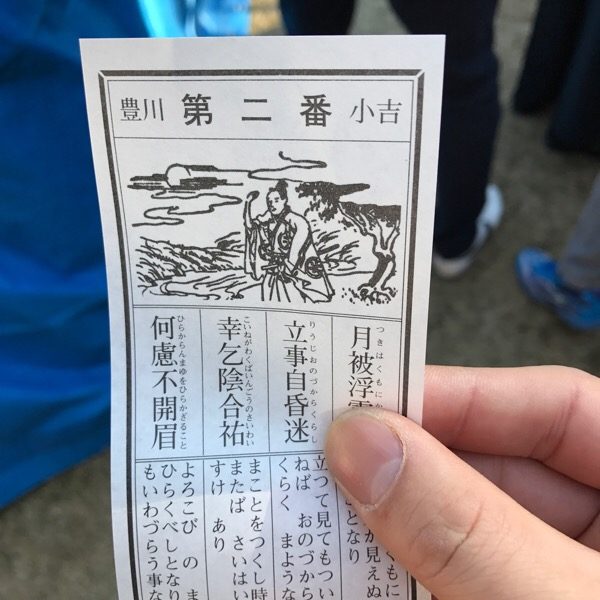 豊川 第二番 小吉
つきはくもにか
月被浮
りうじおのづからくらし
立事自昏迷
こいねがわくばいんごうのさいわい
幸乞陰合祐
ひらからんまゆをひらかざること
何慮不開眉
くもに
が見えぬ
となり
立つて見てもつい
ねば おのづから
くらく まような
まことをつくし時
またば さいはい
すけ あり
よろこび の ま
ひらくべしとなり
もいわづらう事な